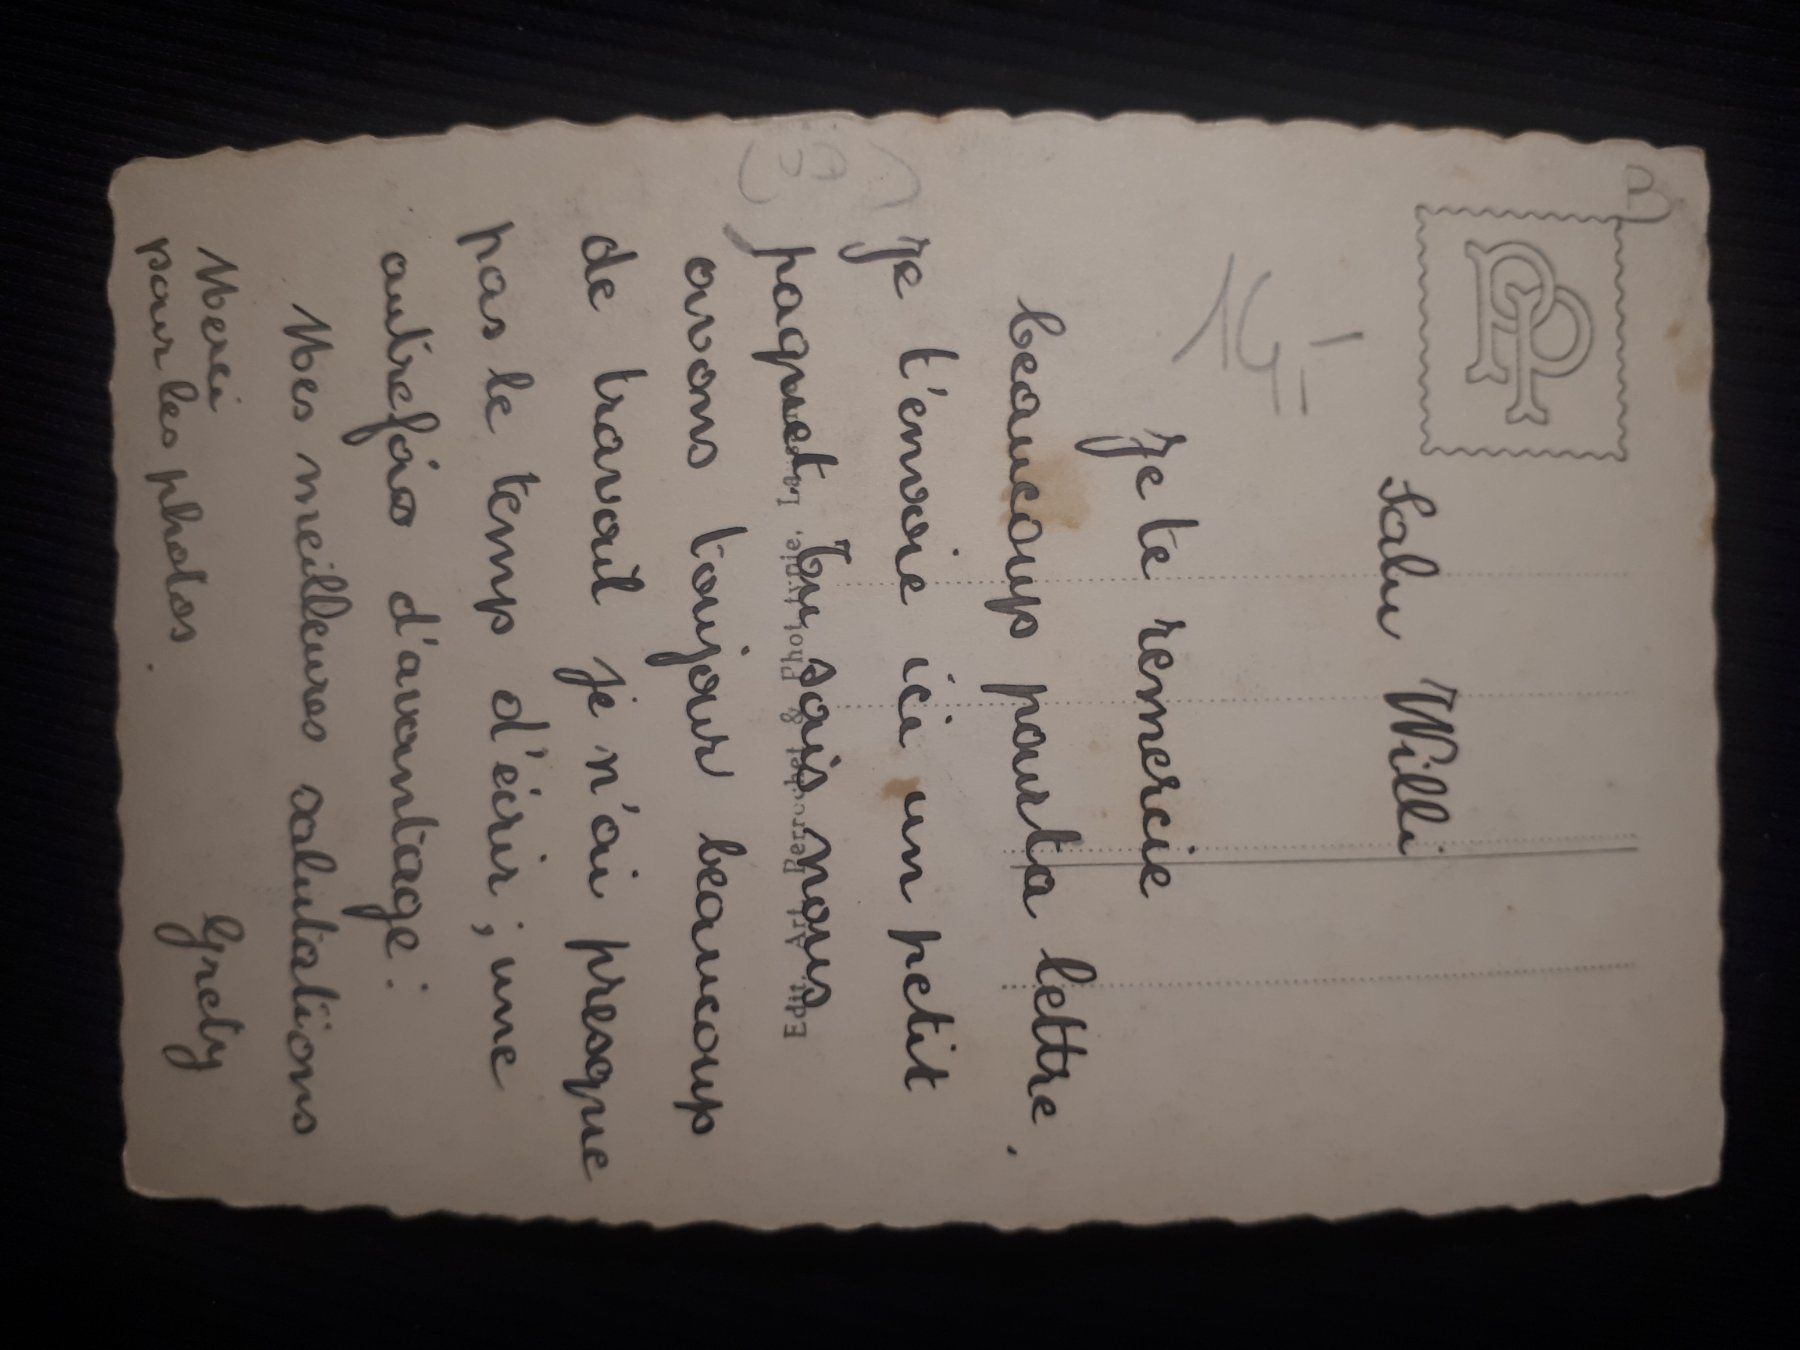 Salu Willi
Je te remercie
beaucoup pour ta lettre.
Je t'envoie ici un petit
paquet. Tu sais nous
avons toujour beaucoup
de travail je n'ai presque
pas le temp d'écrir; une
autrefois d'avantage:
Mes meilleures salutations
Merci
pour les photos.
Grety
Edit. Art. Perrochet & Phototypie,
14.-